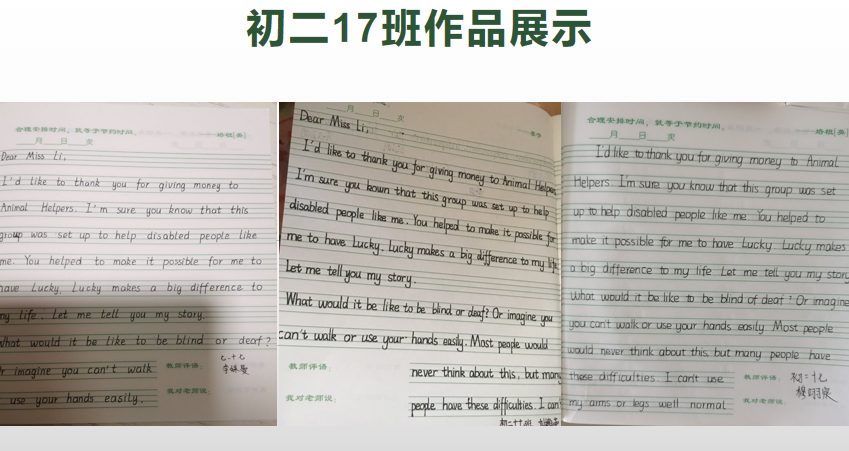 初二17班作品展示
合理安排时间，就等于节约时间。 ——培根[英]
月 日 次
Dear Miss Li,
I'd like to thank you for giving money to
Animal Helpers. I'm sure you know that this
group was set up to help disabled people like
me. You helped to make it possible for me to
have Lucky. Lucky makes a big difference to
my life. Let me tell you my story.
What would it be like to be blind or deaf?
Or imagine you can't walk
use your hands easily.
教师评语：
我对老师说：
月 日 次
Dear Miss Li,
I'd like to thank you for giving money to Animal Helpers
I'm sure you kown that this group was set up to help
disabled people like me. You helped to make it possible for
me to have Lucky. Lucky makes a big difference to my life
Let me tell you my story.
What would it be like to be blind or deaf? Or imagine you
can't walk or use your hands easily. Most people would
never think about this, but many
people have these difficulties. I can
教师评语：
我对老师说：
合理安排时间，就等于节约时间。 ——培根[英]
月 日 次
I'd like to thank you for giving money to Animal
Helpers. I'm sure you know that this group was set
up to help disabled people like me You helped to
make it possible for me to have Lucky Lucky makes
a big difference to my life Let me tell you my story
What would it be like to be blind of deaf? Or imagine
you can't walk or use your hands easily Most people
would never think about this, but many people have
these difficulties I can't use
my arms or legs well normal
教师评语：
初二十七
我对老师说：